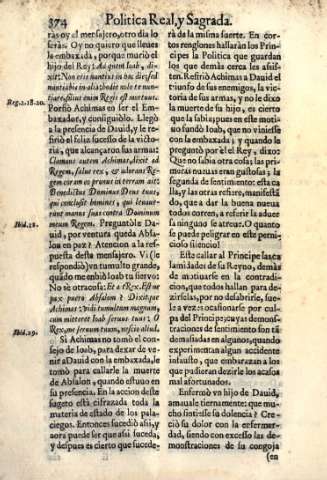 374 Politica Real, y Sagrada.
ras oy el mensajero, otro dia lo
seràs: Oy no quiero que lleues
la embaxada, porque muriò el
hijo del Rey: Ad quem Ioab, di-
xit: Non eris nuntius in hac die, sed
nuntiabis in alia: hodie nolo te nun-
tiare, filius enim Regis est mortuus.
Porfiò Achimas en ser el Em-
baxador, y consiguiòlo. Llegò
a la presencia de Dauid, y le re-
firiò el feliz sucesso de la victo-
ria, que alcançaron sus armas:
Clamans autem Achimas, dixit ad
Regem, salue rex, & adorans Re-
gem coram eo pronus in terram ait:
Benedictus Dominus Deus tuus,
qui conclusit homines, qui leuaue-
runt manus suas contra Dominum
meum Regem. Preguntòle Da-
uid, por ventura queda Absa-
lon en paz? Atencion a la res-
puesta deste mensajero. Vi (le
respondiò) vn tumulto grande,
quando me embiò Ioab tu sieruo:
No sè otra cosa: Et a Rex. Est ne
pax puero Absalon? Dixitque
Achimas: Vidi tumultum magnum,
cum mitteret Ioab seruus tuus: O
Rex, me seruum tuum, nescio aliud.
Si Achimas no tomò el con-
sejo de Ioab, para dexar de ve-
nir a Dauid con la embaxada, le
tomò para callarle la muerte
de Absalon, quando estuuo en
su presencia. En la accion deste
sageto està cifrazada toda la
materia de estado de los pala-
ciegos. Entonces sucediò assi, y
aora puede ser que assi suceda,
y despues es cierto que sucede-
Reg. 2. 18. 20.
Ibid. 28.
Ibid. 29.
rà de la misma suerte. En cor-
tos renglones hallaràn los Prin-
cipes la Politica que guardan
los que demàs cerca les assis-
ten. Refiriò Achimas a Dauid el
triunfo de sus enemigos, la vic-
toria de sus armas, y no le dixo
la muerte de su hijo, es cierto
que la sabia; pues en este moti-
uo fundò Ioab, que no viniesse
con la embaxada; y quando le
preguntò por èl el Rey, dixo:
Que no sabia otra cosa; las pri-
meras nueuas eran gustosas; la
segunda de sentimiento: èsta ca-
lla, y las otras refiere, manifestã-
do, que a dar la buena nueua
todos corren, a referir la aduer-
sa ninguno se atreue. O quanto
se puede peligrar en este perni-
cioso silencio!
Este callar al Principe las ca-
lamidades de su Reyno, demàs
de motiuarse en la contradi-
cion, que todos hallan para de-
zirselas, por no desabrirle, sue-
le a vezes ocasionarse por cul-
pa del Principe; cuyas demons-
traciones de sentimiento son tã
demasiadas en algunos, quando
experimentan algun accidente
infausto, que embarazan a los
que pudieran dezirle los acasos
mal afortunados.
Enfermò vn hijo de Dauid,
amauale tiernamente: que mu-
cho sintiesse su dolencia? Cre-
ciò su dolor con la enferme-
dad, siendo con excesso las de-
mostraciones de su congoja
(en